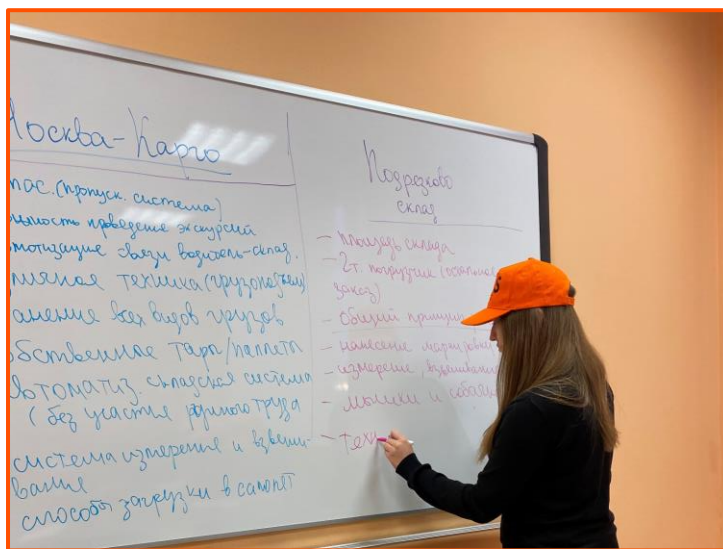 Москва-Карго
(пропуск. система)
проведение экскурсий
связи водитель-склад.
техника (грузоподъем)
всех видов грузов
тара/паллеты
автоматиз. складская система
(без участия ручного труда
система измерения и взвеши-
вания
способы загрузки в самолет
Подрезково
склад
- площадь склада
- 2т. погрузчик (остальное
заказ)
- общий принцип
- нанесение маркировки
- измерение взвешивание
- мышки и собачки
- техн